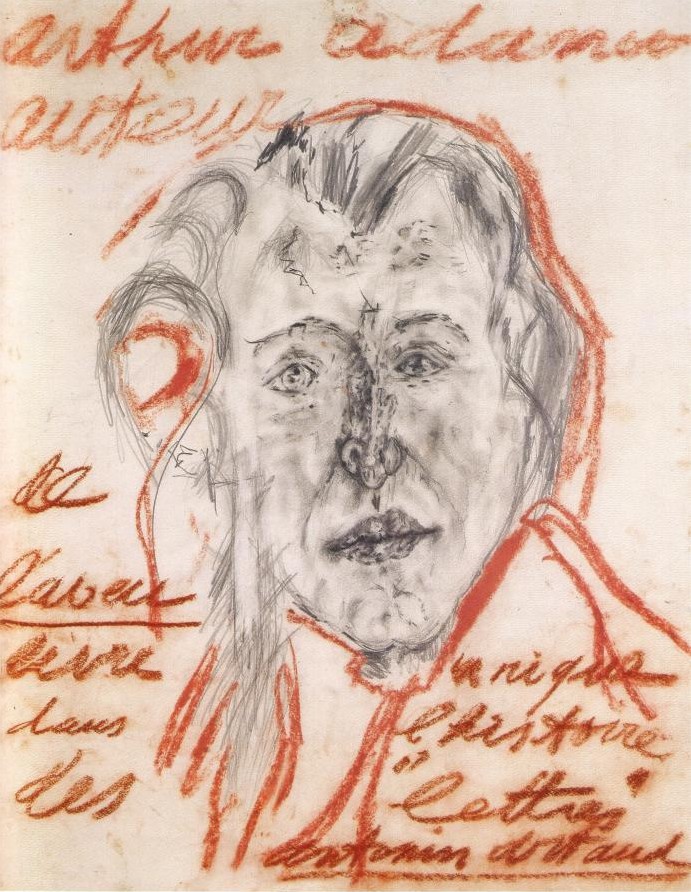 arthur adamov
auteur
de
l'aveu
livre unique
dans l'histoire
des "lettres"
antonin artaud